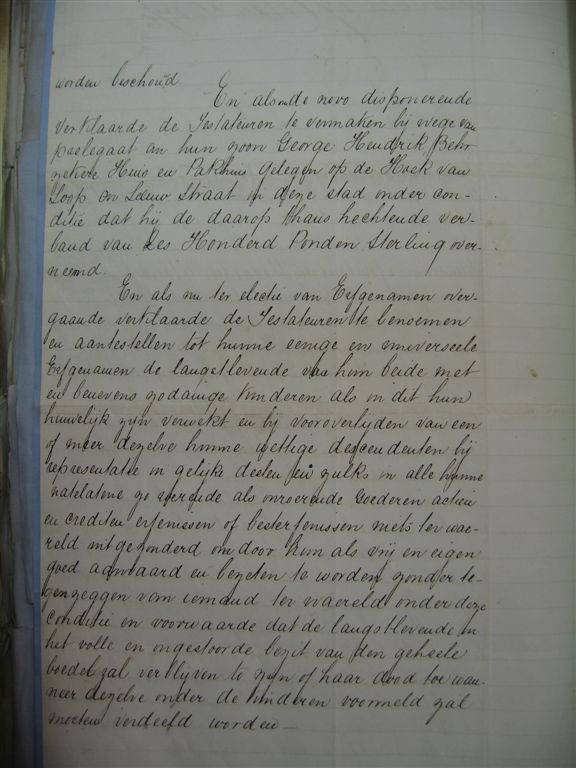 worden beschouwd. En als nu de novo disponerende
verklaarde de Testateuren te vermaken bij wege van
praelegaat an hun zoon George Hendrik Behr
zekere Huis en Pakhuis gelegen op de Hoek van
Loop en Leeuw Straat in deze stad onder con-
ditie dat hij de daarop thans hechtende ver-
band van Zes Honderd Ponden Sterling over-
neemd.
En als nu ter electie van Erfgenamen over-
gaande verklaarde de Testateuren te benoemen
en aantestellen tot hunne eenige en universeele
Erfgenamen de langstlevende van hun beide met
en benevens zodanige kinderen als in dit hun
huwelijk zyn verwekt en bij vooroverlyden van een
of meer dezelve hunne wettige descendenten bij
representatie in gelijke deelen en zulks in alle hunne
natelatene zo roerende als onroerende Goederen actien
en crediten erfenissen of besterfenissen niets ter wae-
reld uitgezonderd om door hun als vrij en eigen
goed aanvaard en bezeten te worden zonder te-
genzeggen van iemand ter waereld onder deze
conditie en voorwaarde dat de langstlevende in
het volle en ongestoorde bezit van den geheele
boedel zal verblyven to zyn of haar dood toe wan-
neer dezelve onder de kinderen voormeld zal
moeten verdeeld worden —